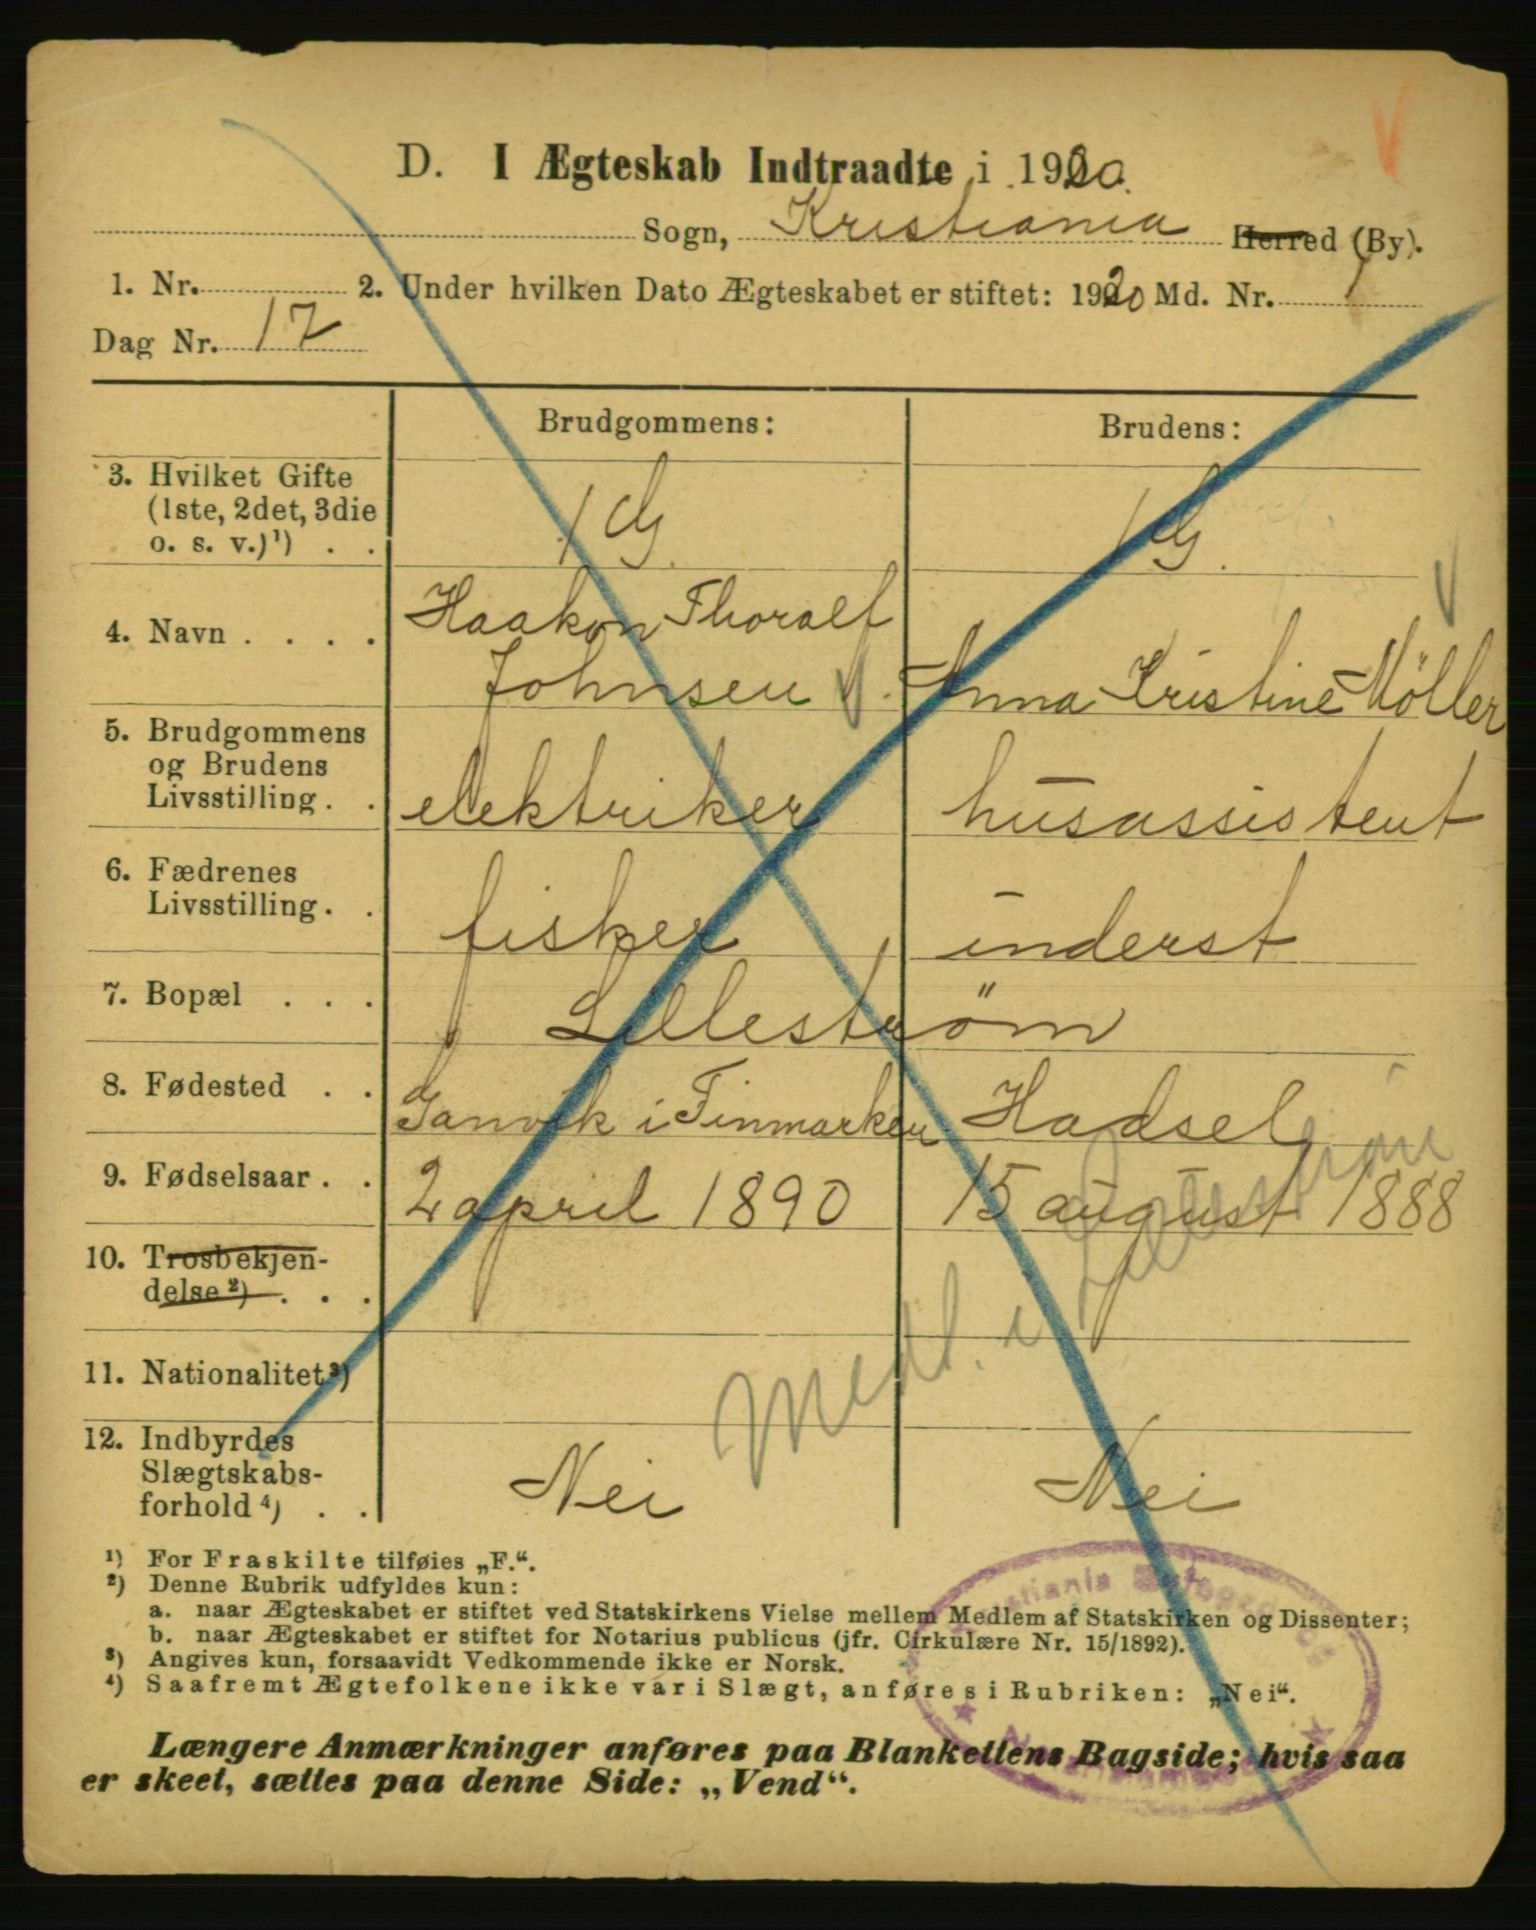 D. I Ægteskab Indtraadte i 1920.
Sogn, Kristiania Herred (By).
1. Nr. 2. Under hvilken Dato Ægteskabet er stiftet: 1920 Md. Nr. 1
Dag Nr. 17
Brudgommens: Brudens:
3. Hvilket Gifte
(1ste, 2det, 3die
o. s. v.)¹) . .
1 G. 1 G.
4. Navn . . . .
Haakon Thoralf
Johnsen Anna Kristine Möller
5. Brudgommens
og Brudens
Livsstilling . .
elektriker husassistent
6. Fædrenes
Livsstilling . .
fisker inderst
7. Bopæl . . .
Lilleström
8. Fødested . .
Ganvik i Finmarken Hadsel
9. Fødselsaar . .
2 april 1890 15 august 1888
10. Trosbekjen-
delse ²) . . .
11. Nationalitet ³)
Medl. i Lilleström
12. Indbyrdes
Slægtskabs-
forhold ⁴) . .
Nei Nei
¹) For Fraskilte tilføies „F.“.
²) Denne Rubrik udfyldes kun:
a. naar Ægteskabet er stiftet ved Statskirkens Vielse mellem Medlem af Statskirken og Dissenter;
b. naar Ægteskabet er stiftet for Notarius publicus (jfr. Cirkulære Nr. 15/1892).
³) Angives kun, forsaavidt Vedkommende ikke er Norsk.
⁴) Saafremt Ægtefolkene ikke var i Slægt, anføres i Rubriken: „Nei“.
Længere Anmærkninger anføres paa Blankettens Bagside; hvis saa
er skeet, sættes paa denne Side: „Vend“.